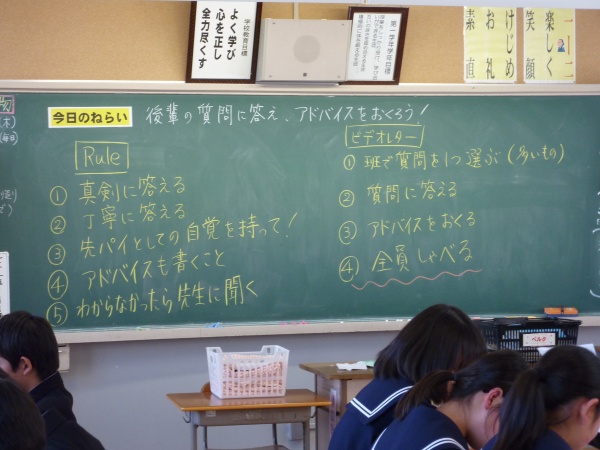 学校教育目標
よく学び
心を正し
全力尽くす
第一学年学年目標
楽しく
笑顔
けじめ
礼
素直
お
(木)
今日のねらい
後輩の質問に答え、アドバイスをおくろう!
Rule
① 真剣に答える
② 丁寧に答える
③ 先パイとしての自覚を持って!
④ アドバイスも書くこと
⑤ わからなかったら先生に聞く
ビデオレター
① 班で質問を1つ選ぶ(多いもの)
② 質問に答える
③ アドバイスをおくる
④ 全員しゃべる